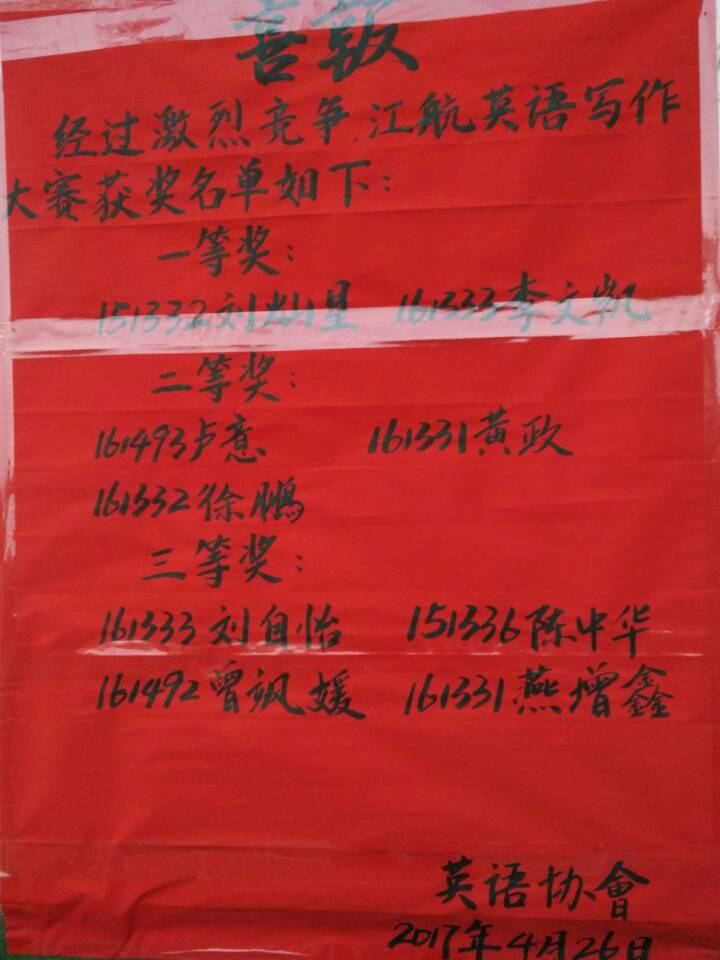 喜報
经过激烈竞争,江航英语写作
大赛获奖名单如下:
一等奖:
151332刘灿星 161333李文凯
二等奖:
161493卢意 161331黄政
161332徐鵬
三等奖:
161333刘自怡 151336陈中华
161492曾飒媛 161331燕增鑫
英语协會
2017年4月26日